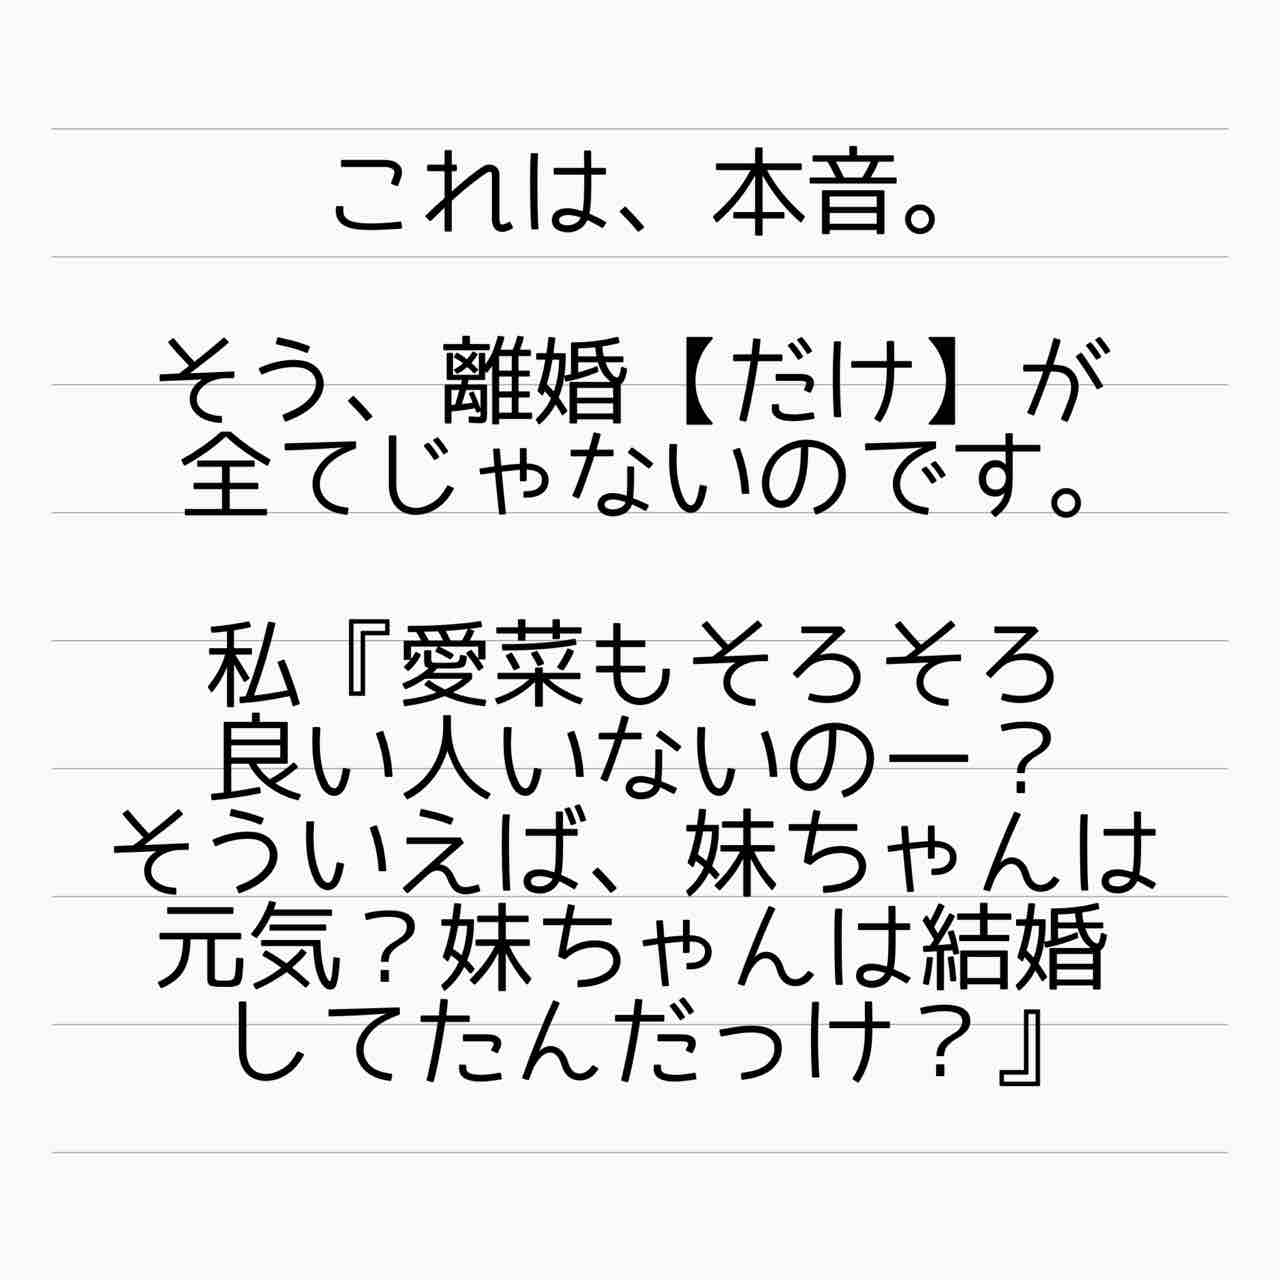 これは、本音。
そう、離婚【だけ】が
全てじゃないのです。
私『愛菜もそろそろ
良い人いないのー？
そういえば、妹ちゃんは
元気？妹ちゃんは結婚
してたんだっけ？』